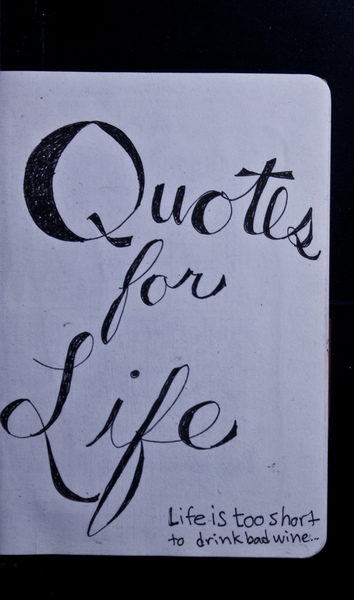 Quotes
for
Life
Life is too short
to drink bad wine...